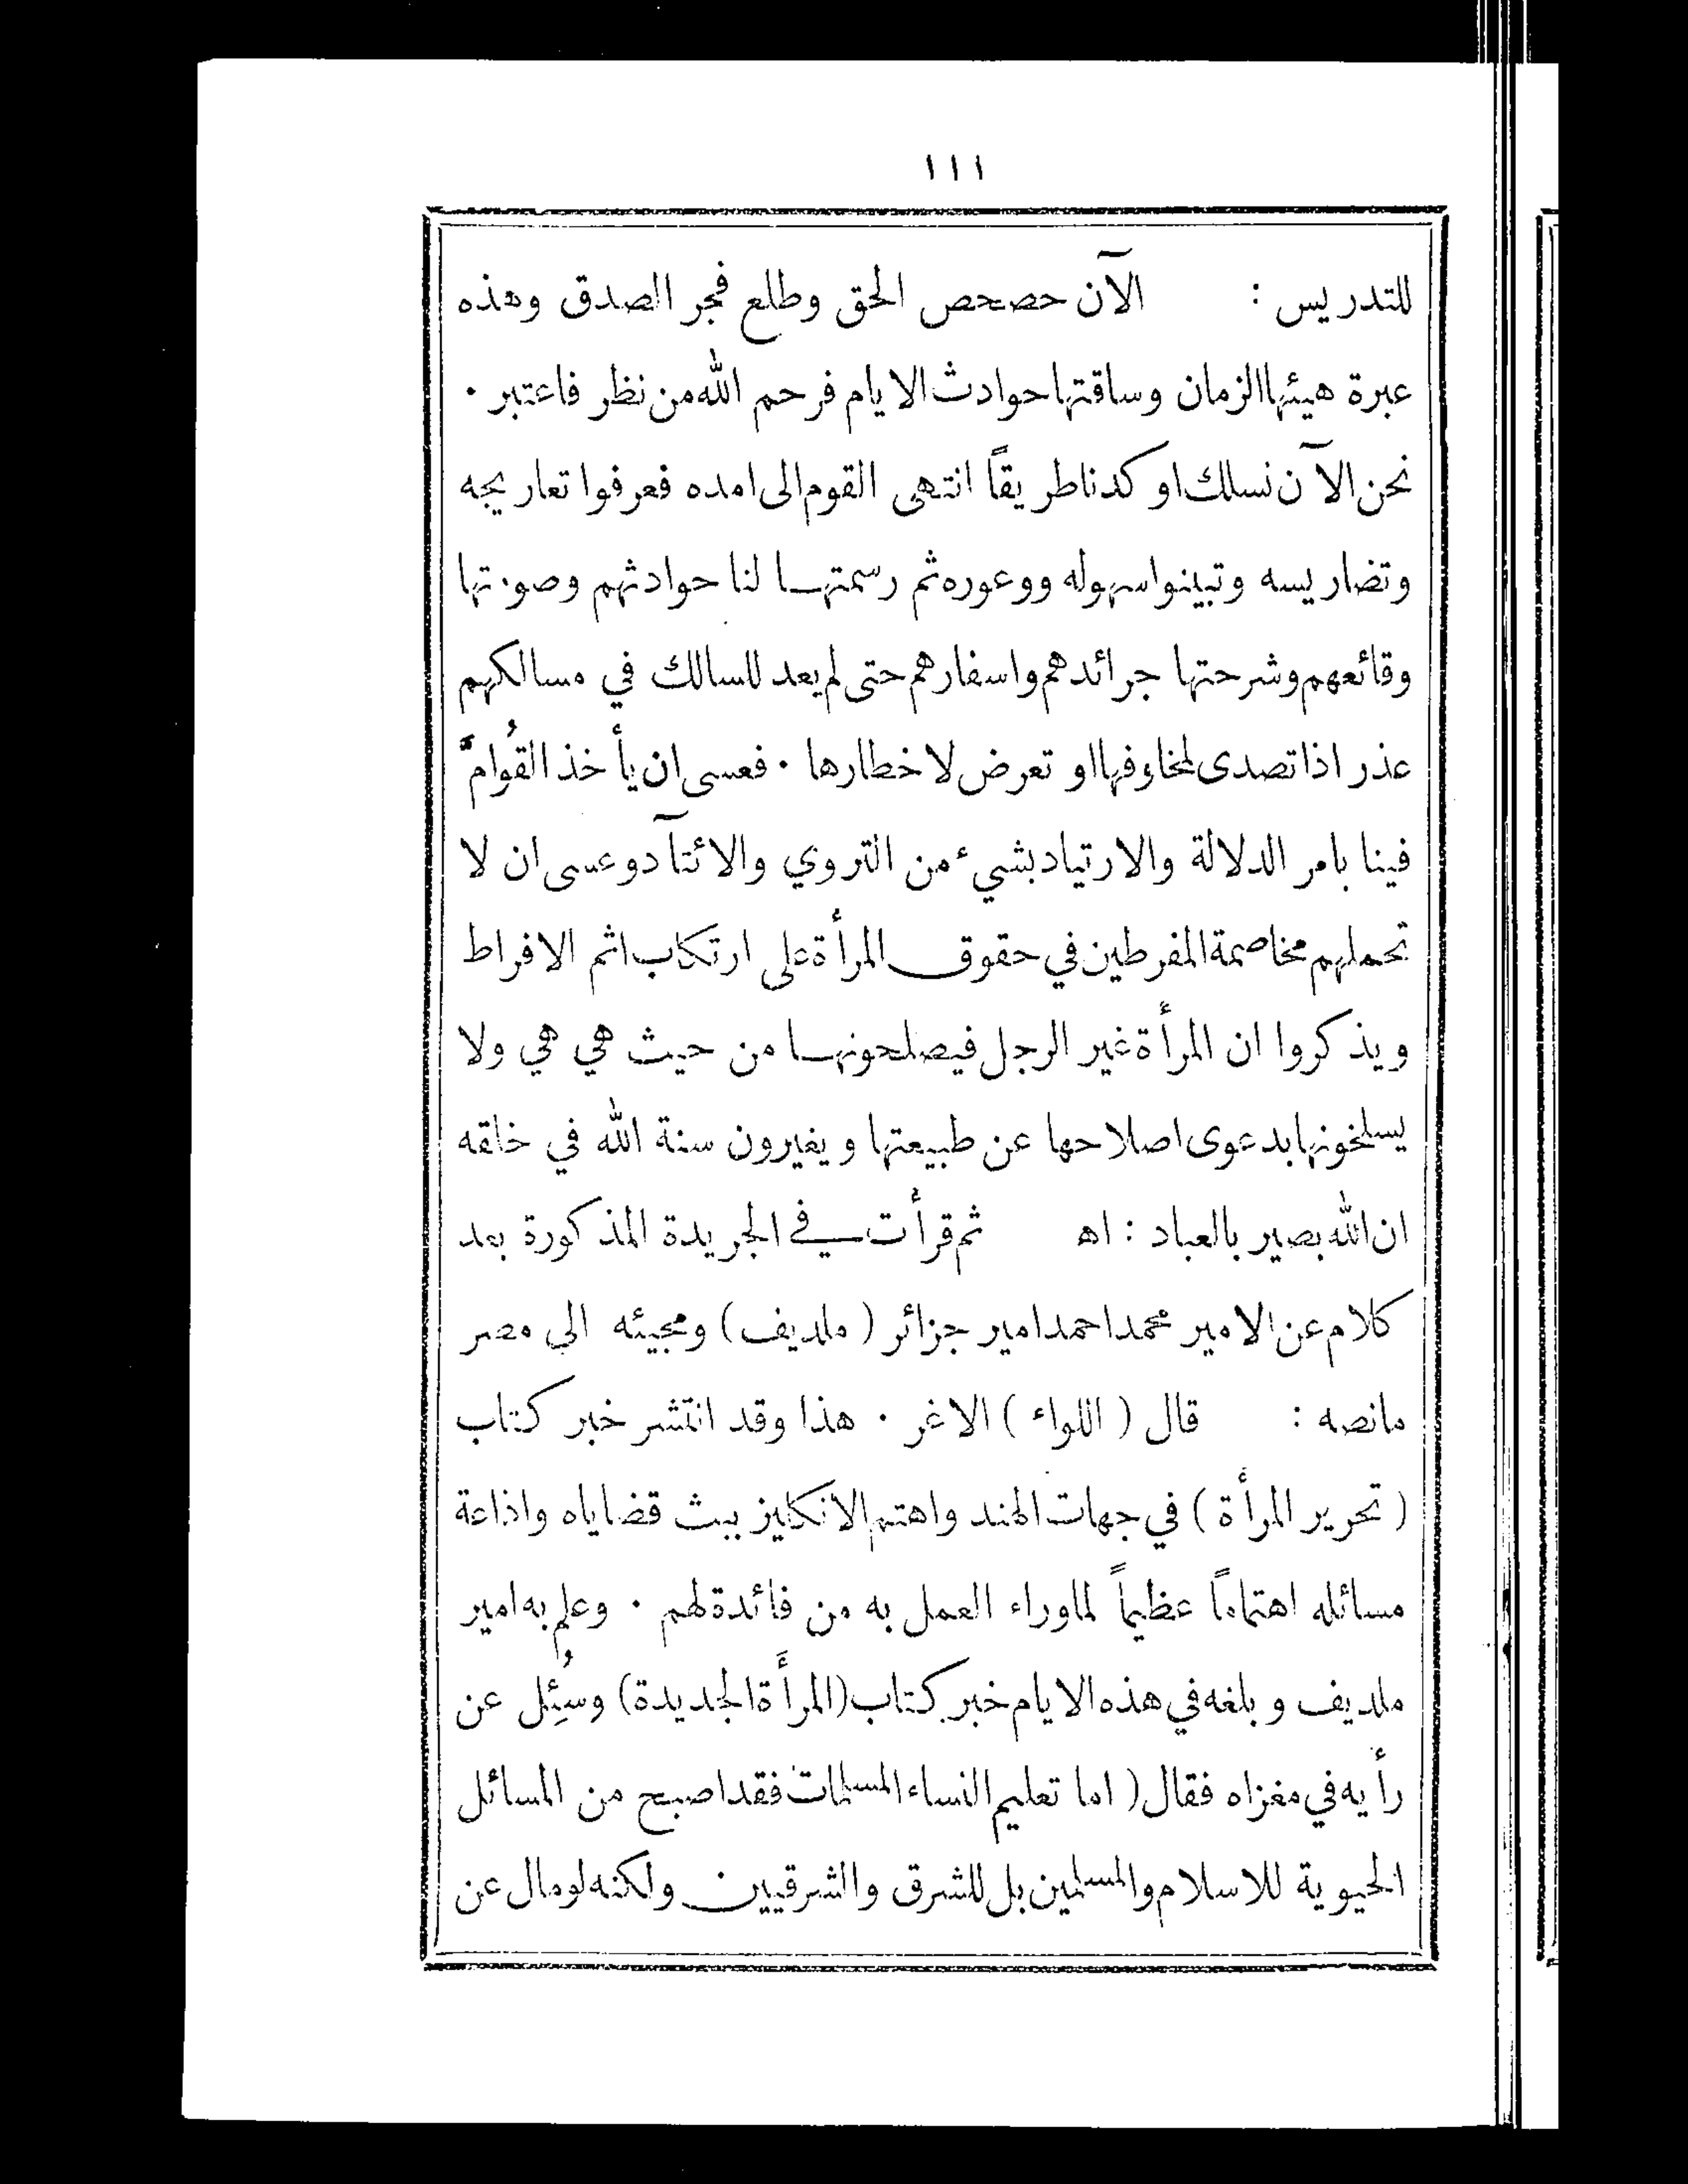 ١١١
للتدريس : الآن حصحص الحق وطلع فجر الصدق وهذه
عبرة هيئها الزمان وساقتها حوادث الايام فرحم الله من نظر فاعتبر ·
نحن الآن نسلك او كدنا طريقاً انتهى القوم الى امده فعرفوا تعاريجه
وتضاريسه وتبينوا سهوله ووعوره ثم رسمتها لنا حوادثهم وصورتها
وقائعهم وشرحتها جرائدهم واسفارهم حتى لم يعد للسالك في مسالكهم
عذر اذا تصدى لمخاوفها او تعرض لاخطارها · فعسى ان يأخذ القُوامُ
فينا بامر الدلالة والارتياد بشيء من التروي والائتآد وعسى ان لا
تحملهم مخاصمة المفرطين في حقوق المرأة على ارتكاب اثم الافراط
ويذكروا ان المرأة غير الرجل فيصلحونها من حيث هي هي ولا
يسلخونها بدعوى اصلاحها عن طبيعتها ويغيرون سنة الله في خلقه
ان الله بصير بالعباد : اه ثم قرأت في الجريدة المذكورة بعد
كلام عن الامير محمد احمد امير جزائر ( ملديف ) ومجيئه الى مصر
مانصه : قال ( اللواء ) الاغر · هذا وقد انتشر خبر كتاب
( تحرير المرأة ) في جهات الهند واهتم الانكليز ببث قضاياه واذاعة
مسائله اهتماماً عظيماً لماوراء العمل به من فائدة لهم · وعلم به امير
ملديف وبلغه في هذه الايام خبر كتاب (المرأَة الجديدة) وسُئِل عن
رأيه في مغزاه فقال ( اما تعليم النساء المسلمات فقد اصبح من المسائل
الحيوية للاسلام والمسلمين بل للشرق والشرقيين ولكنه لومال عن